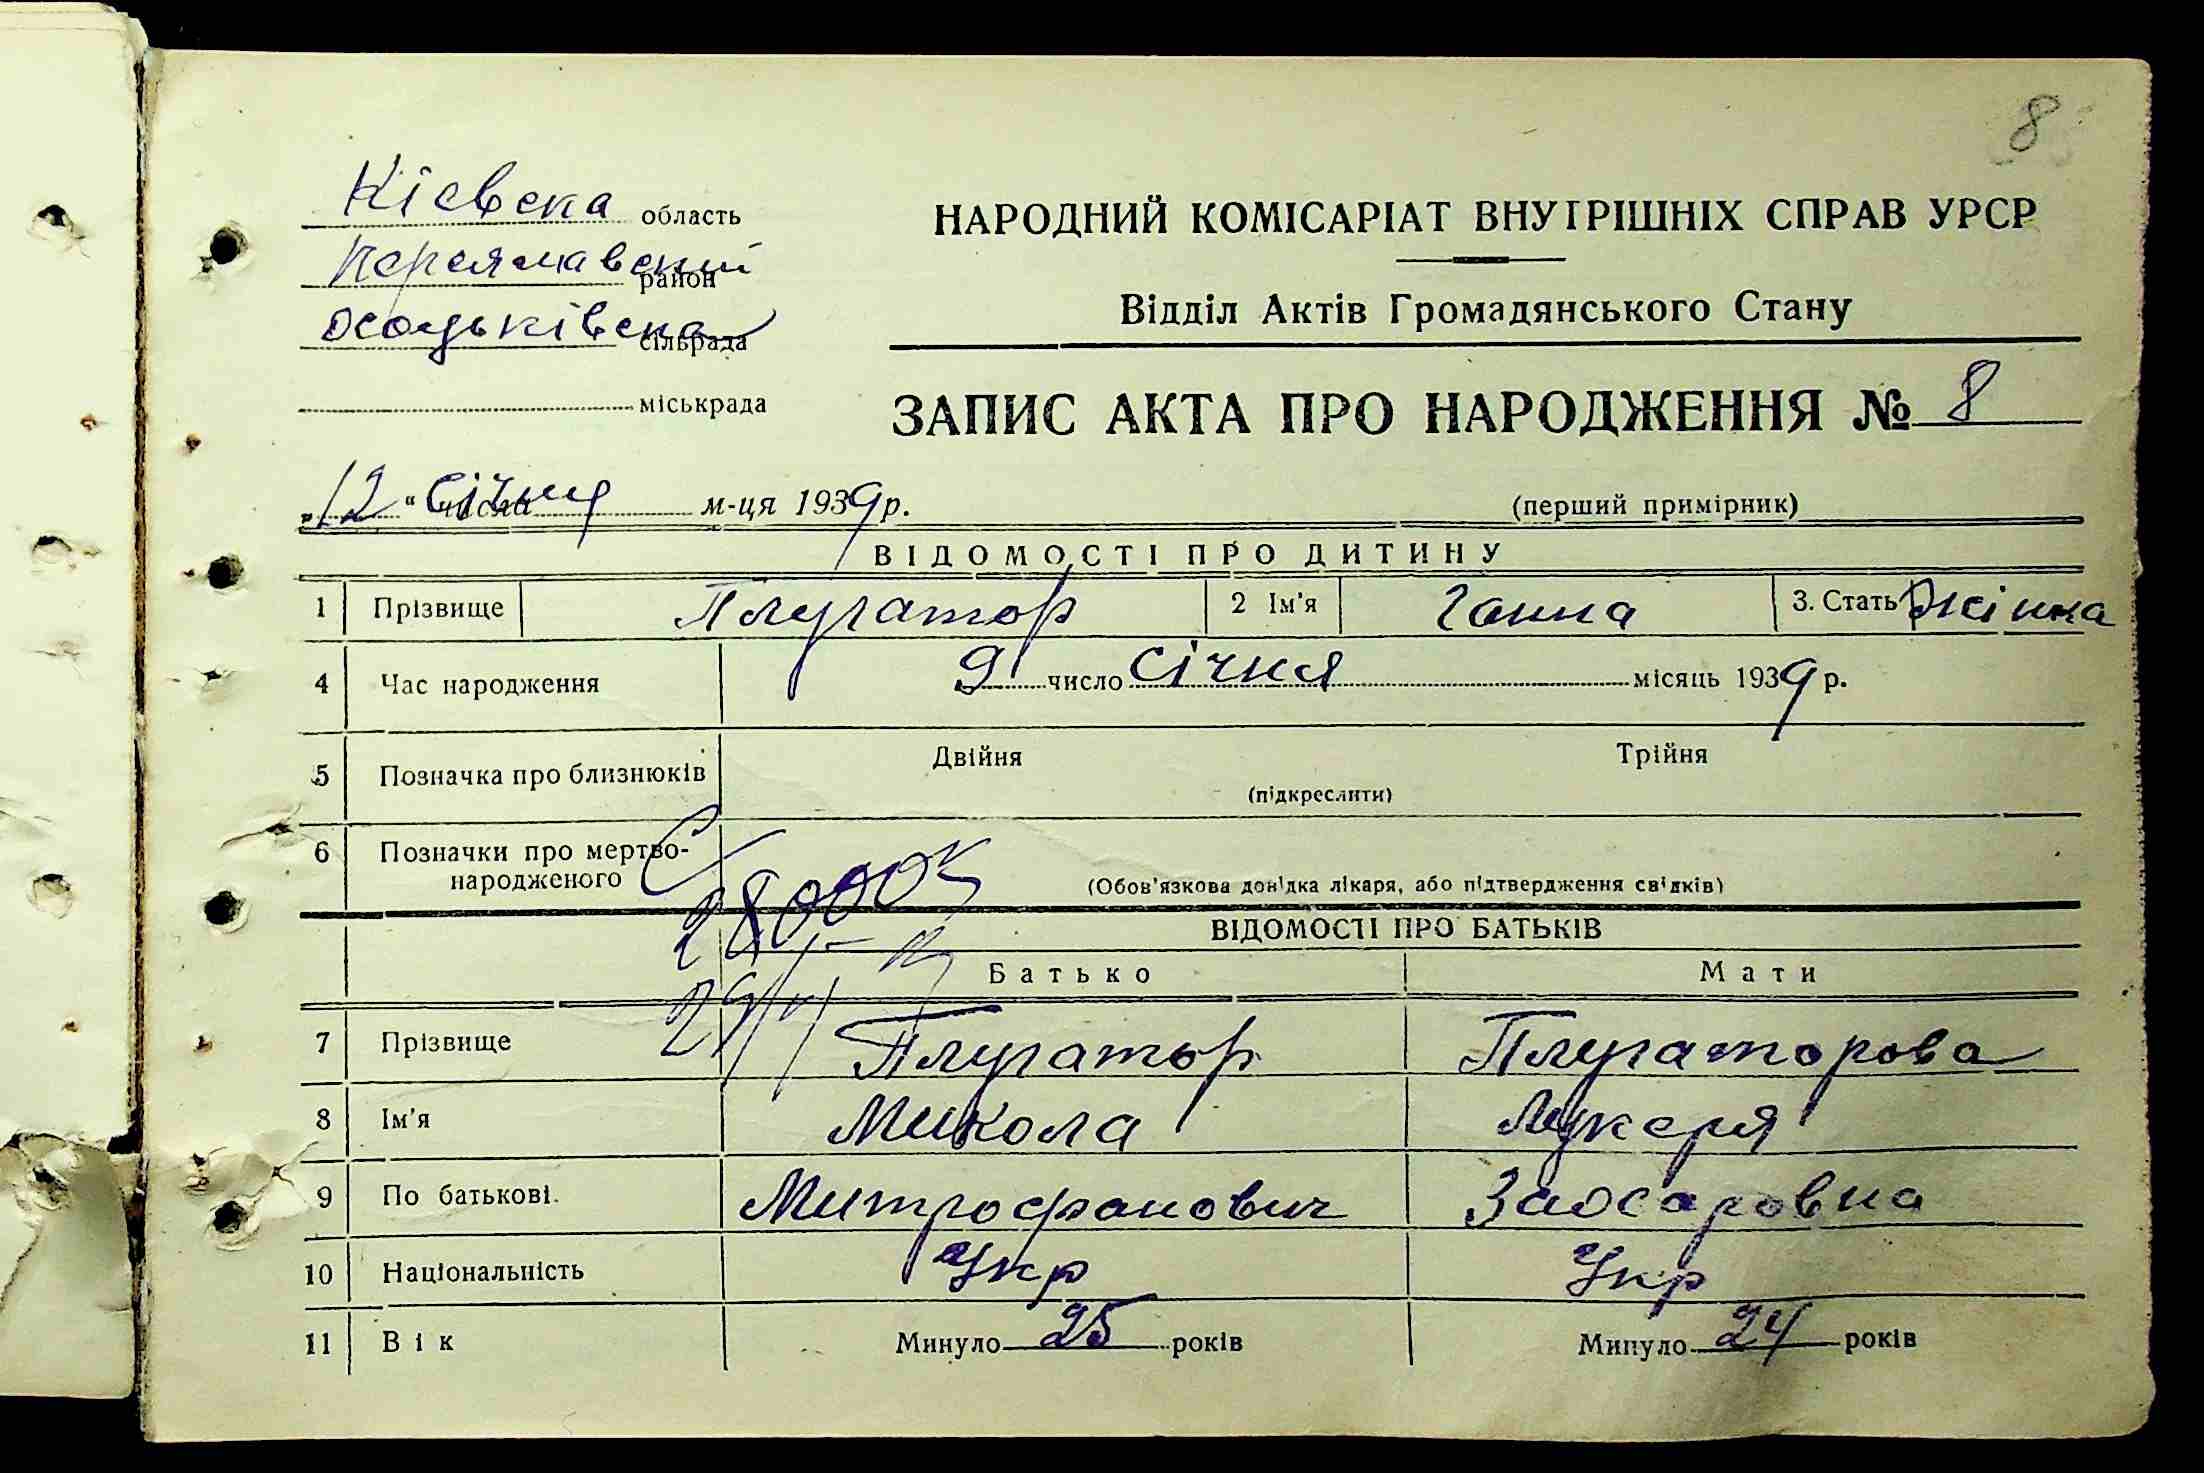 8
Кієвска область
Переяславский район
Осоцьківска сільрада
міськрада
НАРОДНИЙ КОМІСАРІАТ ВНУТРІШНІХ СПРАВ УРСР
Відділ Актів Громадянського Стану
ЗАПИС АКТА ПРО НАРОДЖЕННЯ № 8
„12“ числа січня м-ця 1939 р.
(перший примірник)
ВІДОМОСТІ ПРО ДИТИНУ
1 Прізвище Плугатор 2 Ім'я Ганна 3. Стать жінка
4 Час народження 9 число січня місяць 1939 р.
5 Позначка про близнюків Двійня Трійня
(підкреслити)
6 Позначки про мертво-
народженого (Обов'язкова довідка лікаря, або підтвердження свідків)
ВІДОМОСТІ ПРО БАТЬКІВ
Батько Мати
7 Прізвище Плугатор Плугаторова
8 Ім'я Микола Лукеря
9 По батькові. Митрофанович
10 Національність Укр Укр
11 Вік Минуло 25 років Минуло 24 років